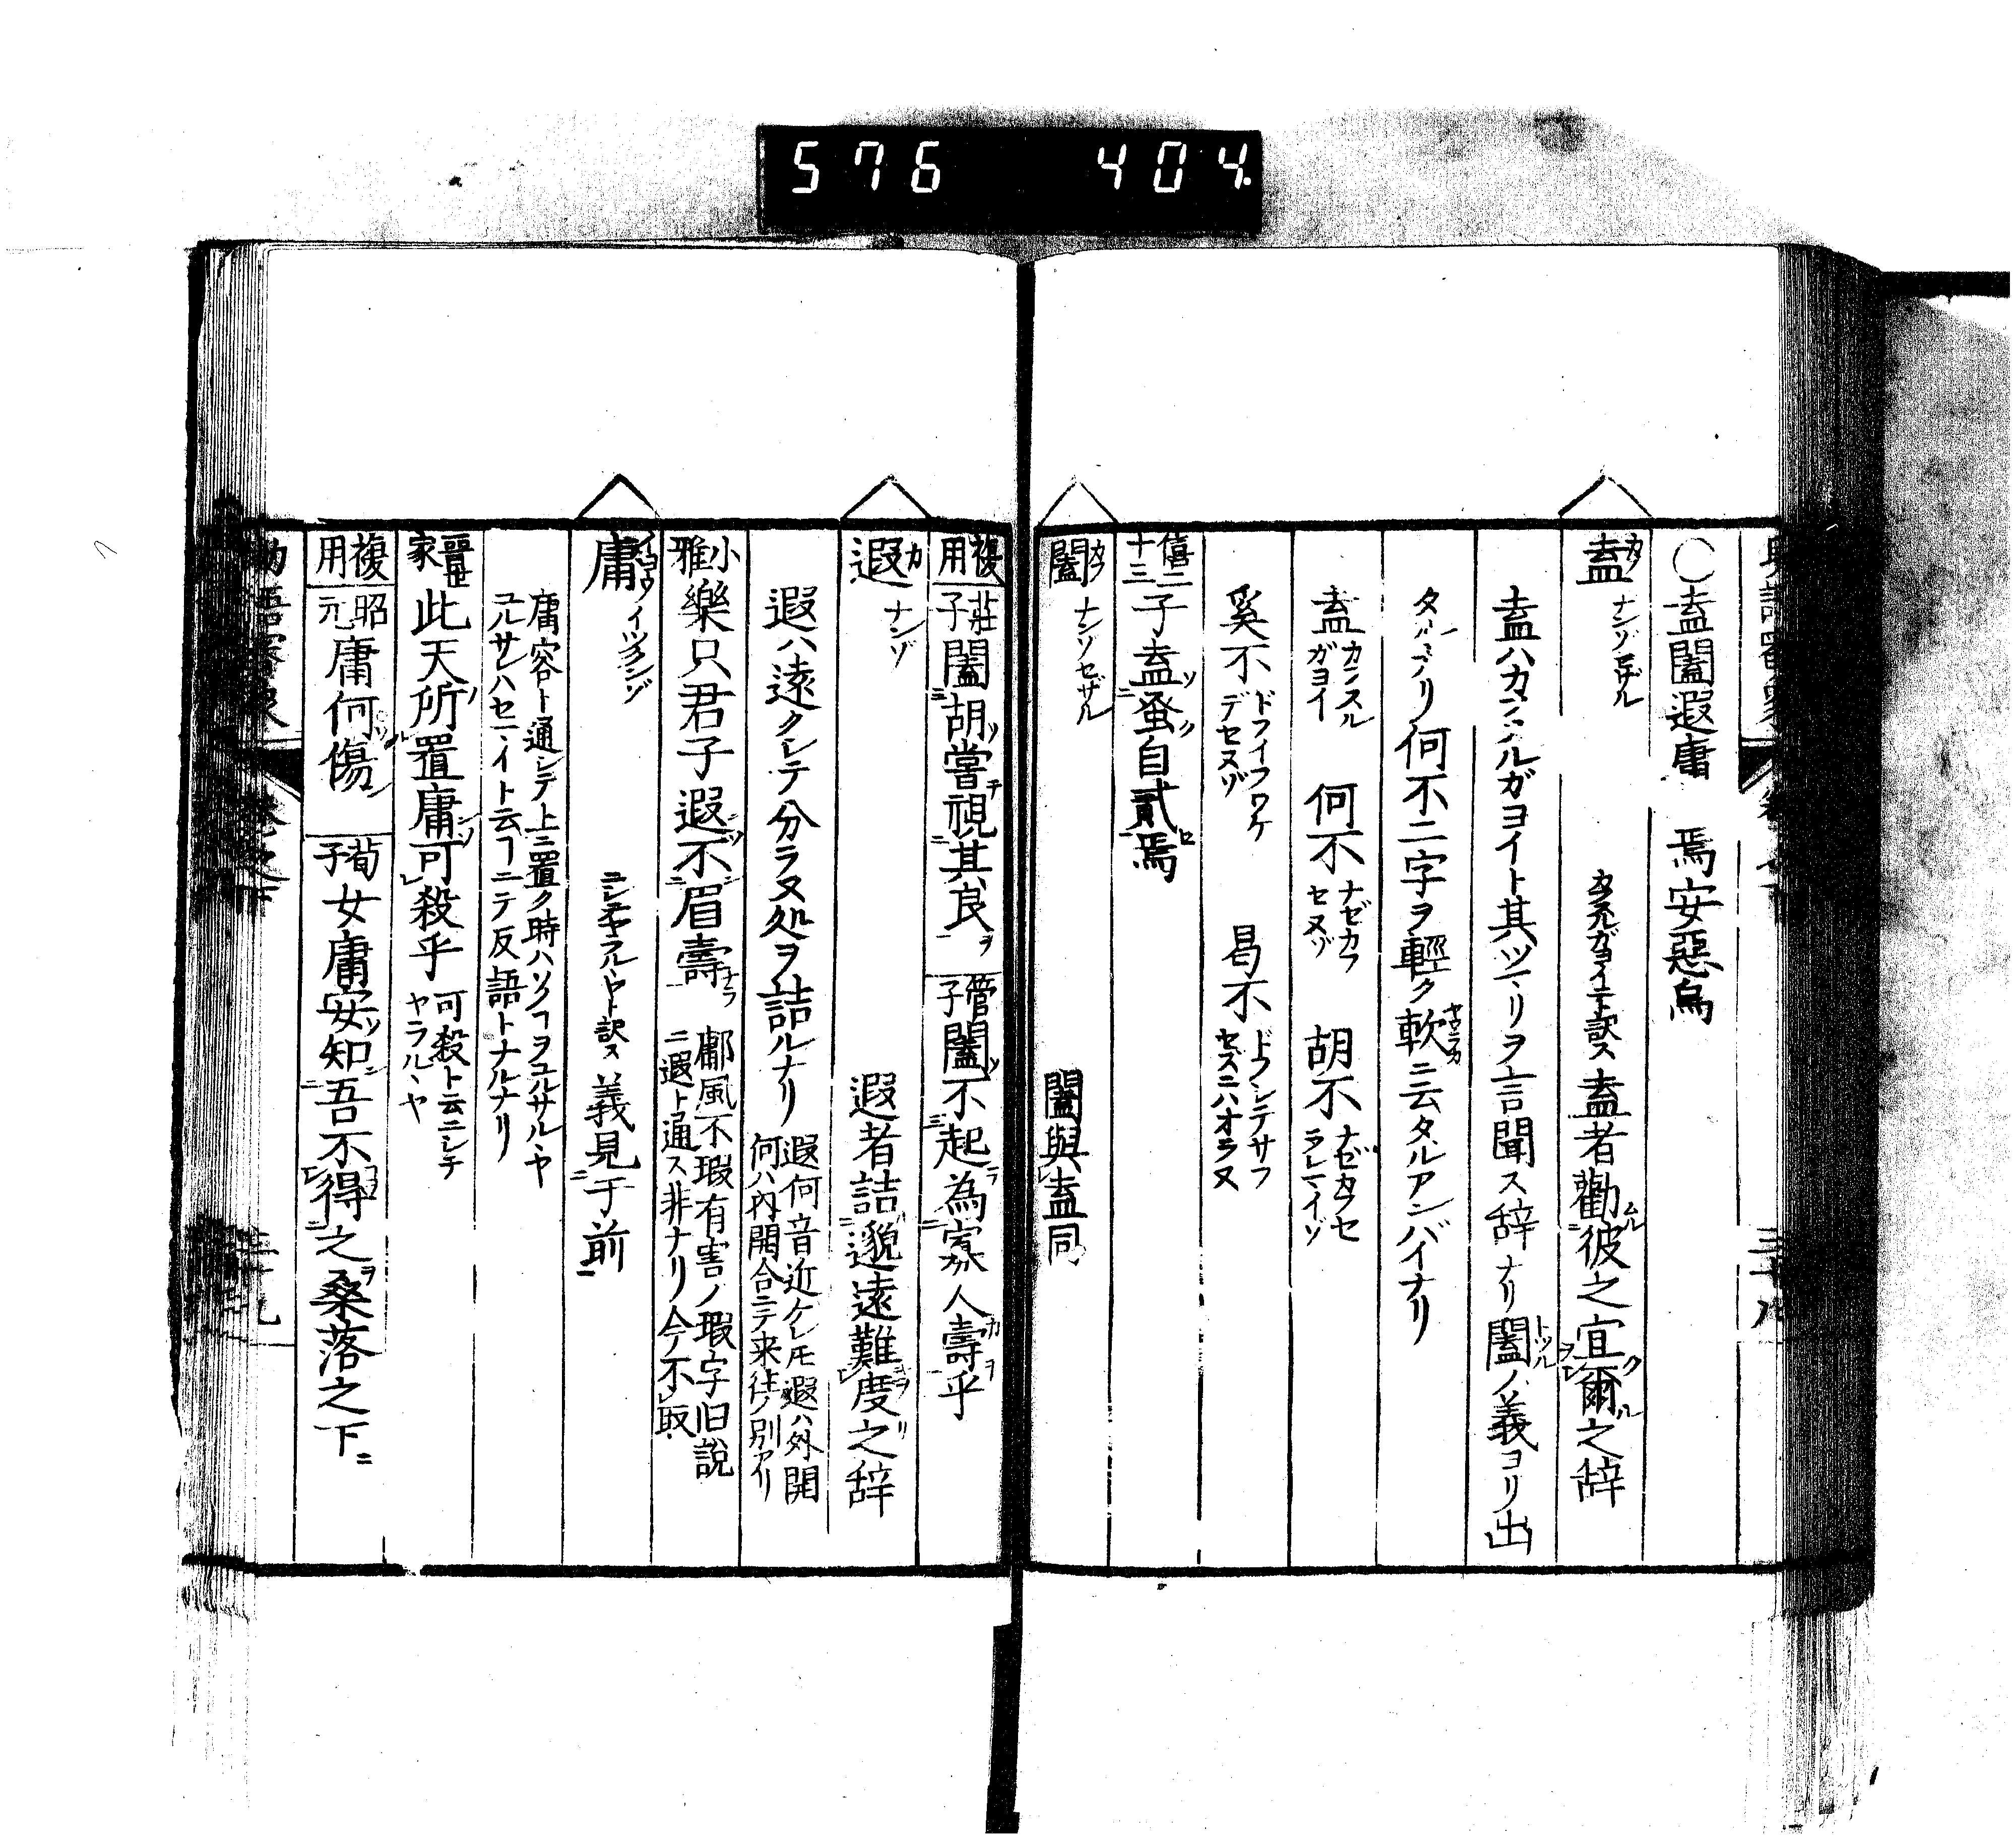 576 404.
○盍闔遐庸　焉安惡烏
盍 ナンゾセザル 盍者勸彼之宜爾之辞
盍ハカンスルガヨイト其ツマリヲ言聞ス辞ナリ闔ノ義ヨリ出
タルユヘナリ何不二字ヲ輕ク軟ニ云タルアンバイナリ
盍 カンスルガヨイ 何不 ナゼカフセヌゾ 胡不 ナゼカフセラレナイゾ
奚不 ドフイフワケデセヌゾ 曷不 ドフシテサフセズニハオラヌ
僖二十三 子盍蚤自貳焉
闔 ナンゾセザル 闔與盍同
複用 莊子 闔胡嘗視其良 管子 闔不起為寡人壽乎
遐 カ ナンゾ 遐者詰邈遠難度之辞
遐ハ遠クシテ分ラヌ処ヲ詰ルナリ 遐何音近ケレモ遐ハ外開何ハ内開合ニテ来往ノ別アリ
小雅 樂只君子遐不眉壽 鄘風不瑕有害ノ瑕字旧説ニ遐ト通ス非ナリ今不取
庸 イヅクンゾ 義見于前
庸容ト通シテ上ニ置ク時ハソノヿヲユルサルヽヤユルサレハセマイト云ヿニテ反語トナルナリ
晋世家 此天所置庸可殺乎 可殺ト云ニシテヤラルヽヤ
複用 昭元 庸何傷 荀子 女庸安知吾不得之桑落之下